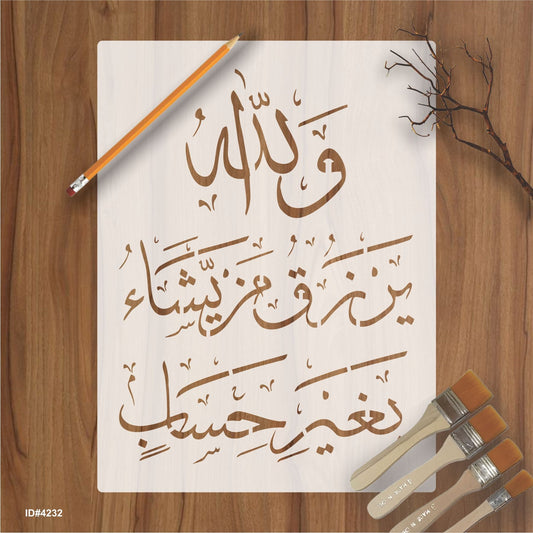 وَاللّٰهُ
يَرْزُقُ مَن يَّشَاءُ
بِغَيْرِ حِسَابٍ
ID#4232